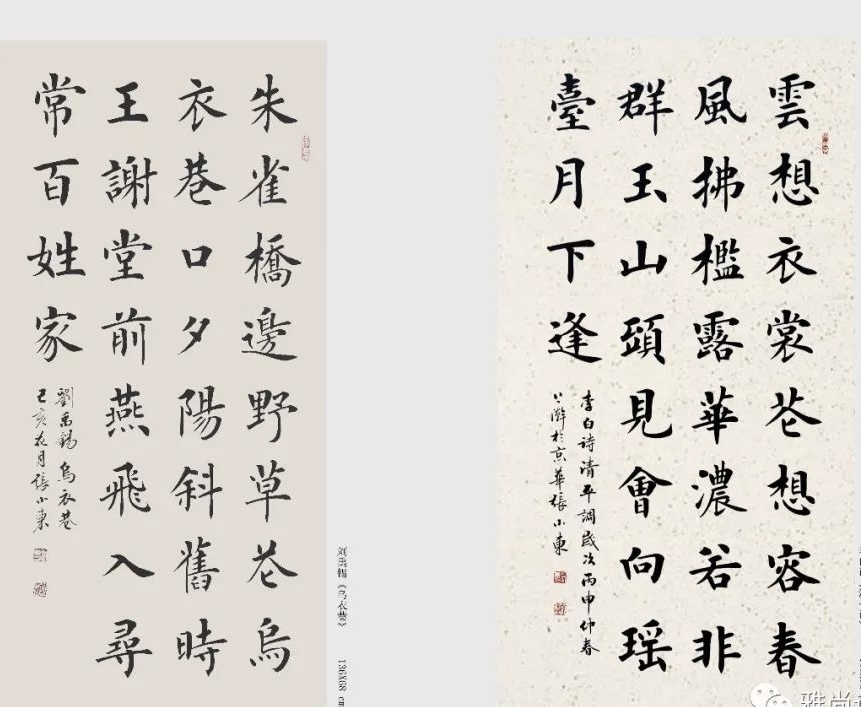 朱雀橋邊野草花烏
衣巷口夕陽斜舊時
王謝堂前燕飛入尋
常百姓家
劉禹錫 烏衣巷
己亥月張小東
刘禹锡《乌衣巷》 136X68 cm
雲想衣裳花想容春
風拂檻露華濃若非
群玉山頭見會向瑶
臺月下逢
李白诗清平調歲次丙申仲春
於京華張小東
雅尚